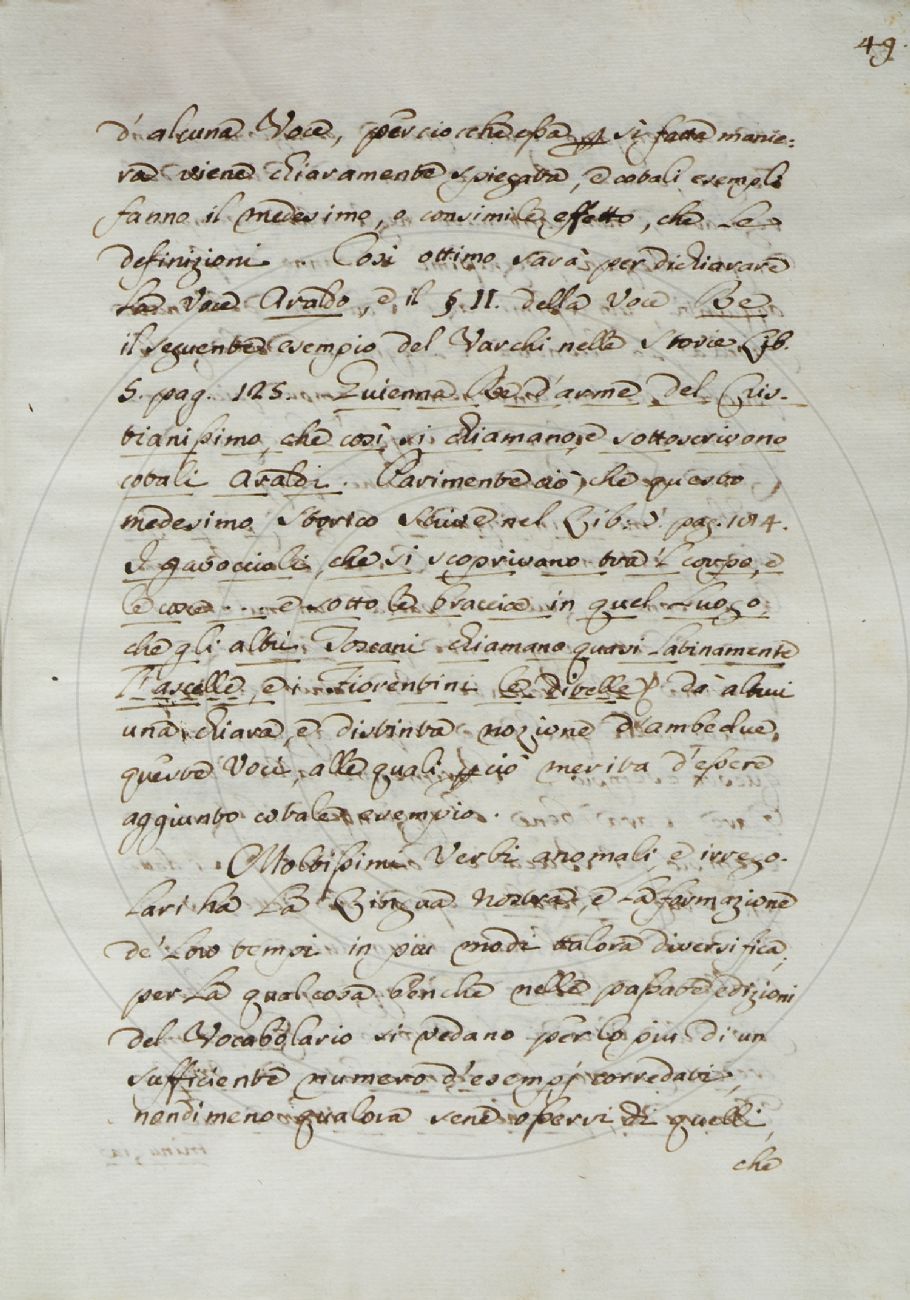 49.
d'alcuna Voce, perciocchè essa per sì fatta manie:
ra viene chiaramente spiegata, e cotali esempli
fanno il medesimo, o consimile effetto, che le
definizioni. Così ottimo sarà per dichiarare
la Voce Araldo, e il § II. della Voce Re
il seguente esempio del Varchi nelle Storie Lib.
5. pag. 125. Guienna Re d'arme del Cris-
tianissimo, che così si chiamano, e sottoscrivono
cotali Araldi. Parimente ciò, che questo
medesimo Storico scrive nel Lib. pag. 184.
I gavoccioli, che si scoprivano tra 'l corpo, e
le cosce ... e sotto le braccia in quel luogo,
che gli altri Toscani chiamano quasi latinamente
l'ascelle, e i Fiorentini le ditelle dà altrui
una chiara, e distinta nozione d'ambedue
queste Voci, alle quali perciò merita d'essere
aggiunto cotale esempio.
Moltissimi Verbi anomali, e irrego-
lari ha la Lingua nostra, e la formazione
de' loro tempi in più modi talora diversifica,
per la qual cosa benchè nelle passate edizioni
del Vocabolario si vedano per lo più di un
sufficiente numero d'esempj corredati,
nondimeno qualora sene osservi di quelli,
che